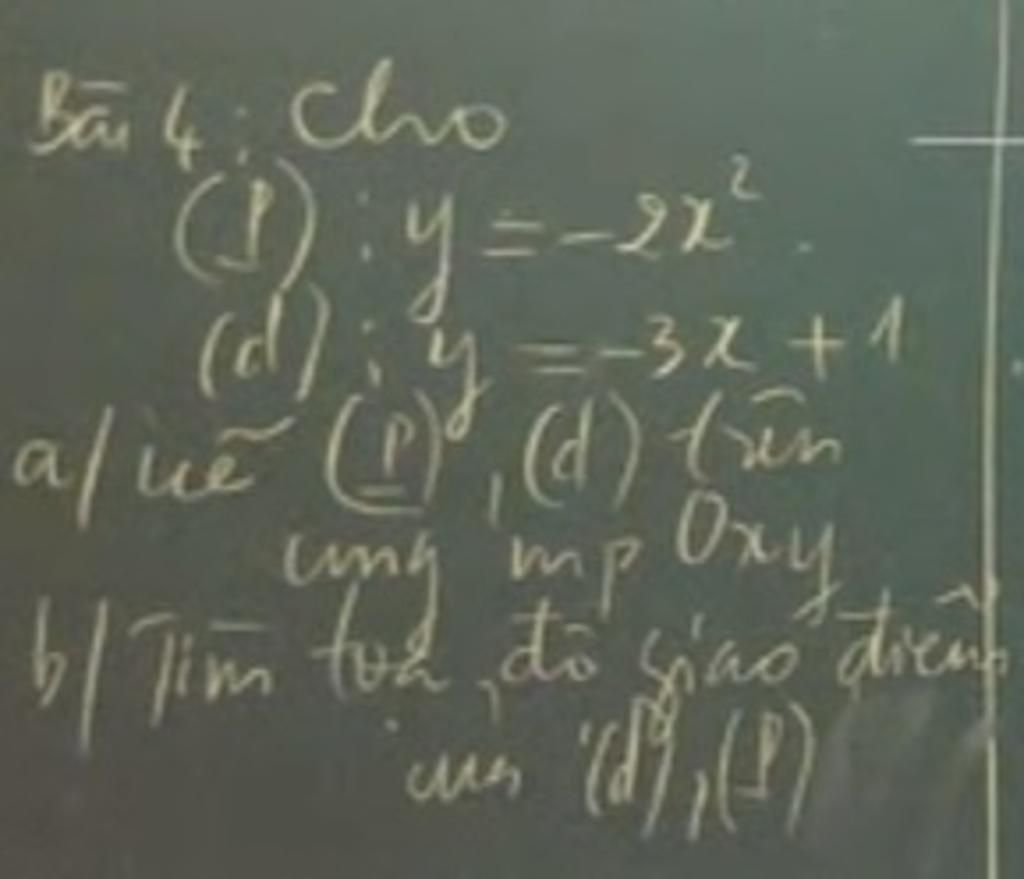 Bài 4: Cho
(P): y = -2x².
(d): y = -3x + 1
a/ Vẽ (P), (d) trên
cùng mp Oxy
b/ Tìm toạ độ giao điểm
của (d), (P)